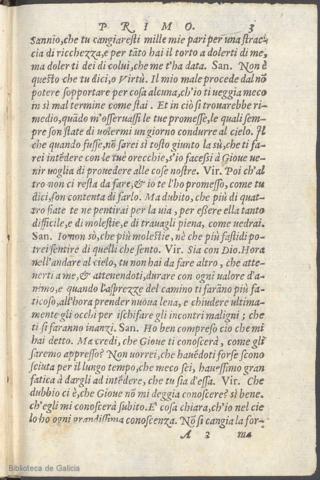 PRIMO. 3
Sannio, che tu cangiaresti mille mie pari per una strac-
cia di ricchezza, e per tāto hai il torto a dolerti di me,
ma doler ti dei di colui, che me t'ha data. San. Non è
questo che tu dici, o Virtù. Il mio male procede dal nō
potere sopportare per cosa alcuna, ch'io ti ueggia meco
in sì mal termine come stai. Et in ciò si trouarebbe ri-
medio, quādo m'osseruassi le tue promesse, le quali sem-
pre son state di uolermi un giorno condurre al cielo. Il
che quando fusse, nō sarei sì tosto giunto la sù, che ti fa-
rei intēdere con le tue orecchie, s'io facessi à Gioue ue-
nir uoglia di prouedere alle cose nostre. Vir. Poi ch'al
tro non ci resta da fare, & io te l'ho promesso, come tu
dici, son contenta di farlo. Ma dubito, che più di quat-
tro fiate te ne pentirai per la uia, per essere ella tanto
difficile, e di molestie, e di trauagli piena, come uedrai.
San. Io non sò, che più molestie, nè che più fastidi po-
trei sentire di quelli che sento. Vir. Sia con Dio. Hora
nell'andare al cielo, tu non hai da fare altro, che atte-
nerti a me, & attenendoti, durare con ogni ualore d'a-
nimo, e quando l'asprezze del camino ti farāno più fa-
ticoso, all'hora prender nuoua lena, e chiudere ultima-
mente gli occhi per ischifare gli incontri maligni; che
ti si faranno inanzi. San. Ho ben compreso ciò che mi
hai detto. Ma credi, che Gioue ti conoscerà, come gli
saremo appresso? Non uorrei, che hauēdoti forse scono
sciuta per il lungo tempo, che meco sei, hauessimo gran
fatica à dargli ad intēdere, che tu sia d'essa. Vit. Che
dubbio ci è, che Gioue nō mi deggia conoscere? sì bene,
ch'egli mi conoscerà subito. E' cosa chiara, ch'io nel cie
lo ho ogni grandissima conoscenza. Nō si cangia la for-
A 2 ma
Biblioteca de Galicia